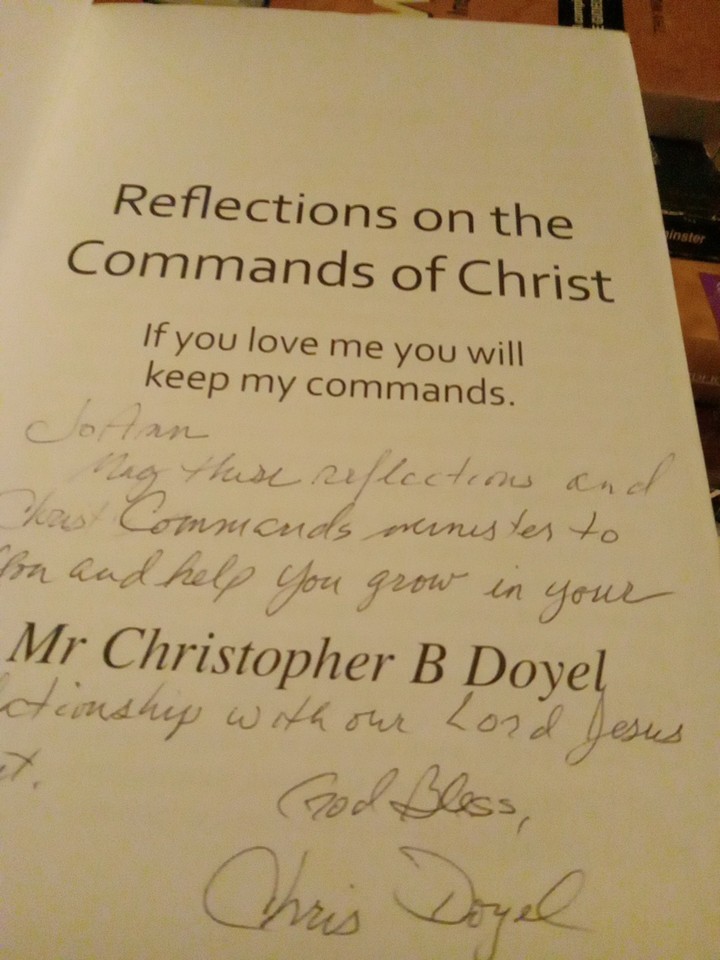 Reflections on the
Commands of Christ
If you love me you will
keep my commands.
JoAnn
May these reflections and
Christ Commands minister to
you and help you grow in your
Mr Christopher B Doyel
ctionship with our Lord Jesus
st.
God Bless,
Chris Doyel
inster